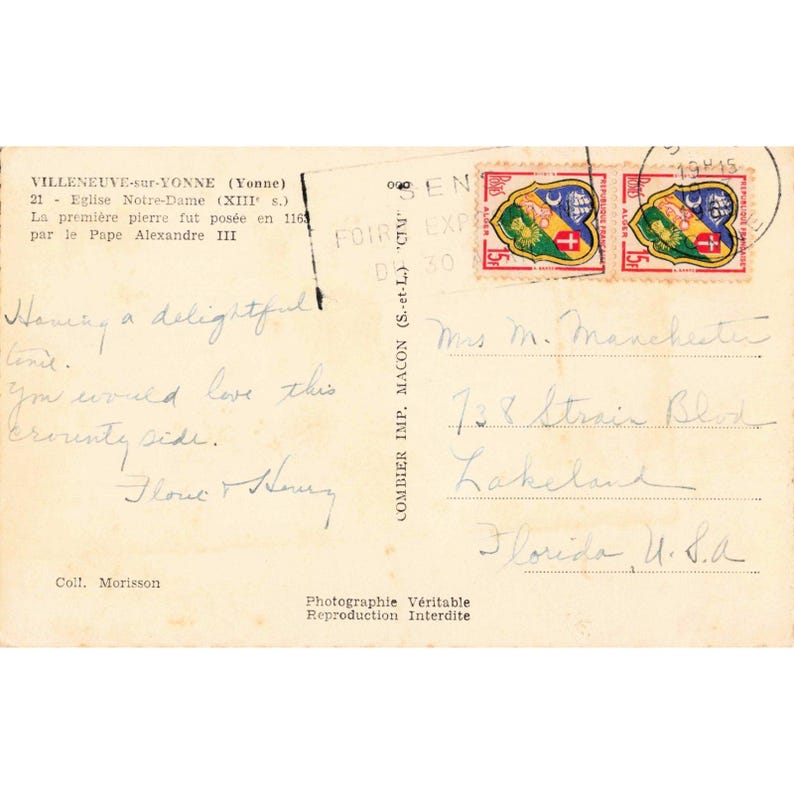 VILLENEUVE-sur-YONNE (Yonne)
21 - Eglise Notre-Dame (XIIIe s.)
La première pierre fut posée en 1163
par le Pape Alexandre III
Having a delightful
time.
You would love this
crountyside.
Florie & Henry
Coll. Morisson
COMBIER IMP. MACON (S.-et-L.) "CIM"
Photographie Véritable
Reproduction Interdite
SENS
FOIRE EXP
DU 30
Postes
REPUBLIQUE FRANÇAISE
ALGER
15F
Postes
REPUBLIQUE FRANÇAISE
ALGER
15F
19H15
Mrs M. Manchester
738 Strain Blvd
Lakeland
Florida, U.S.A